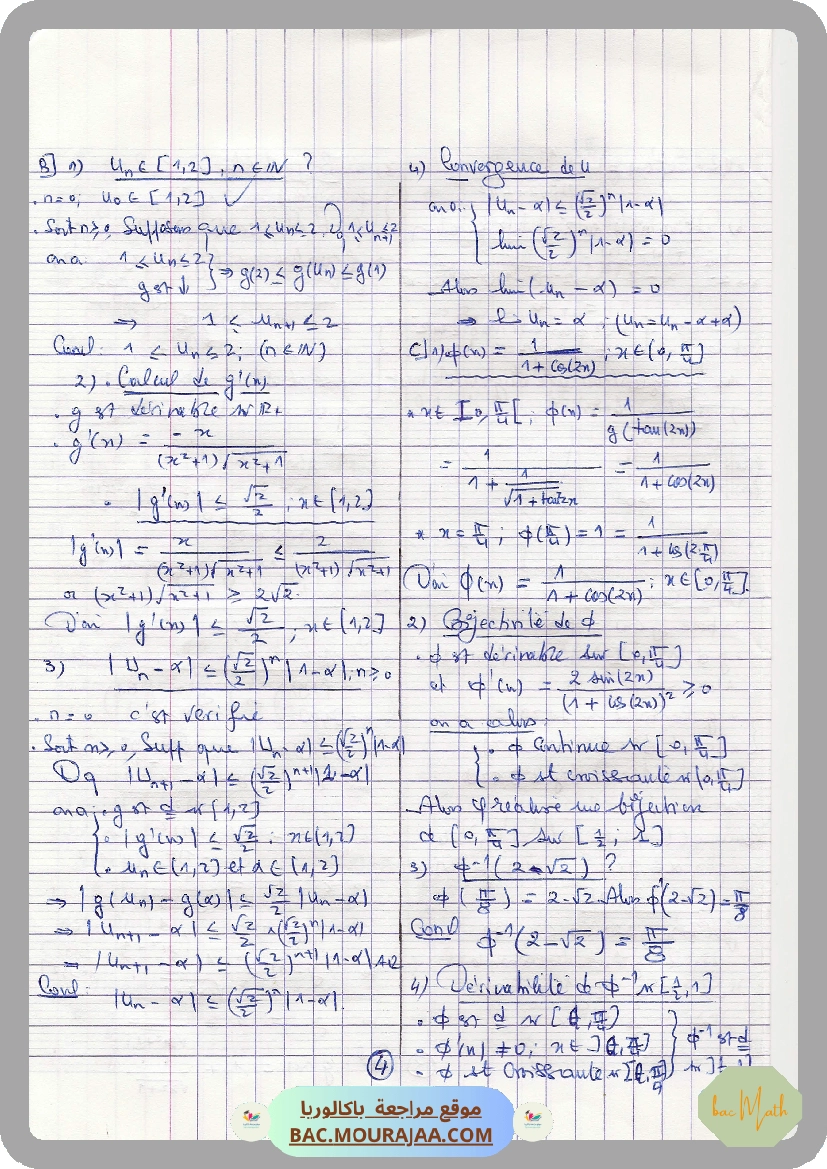 B] 1) Un ∈ [1,2], n ∈ IN ?
. n=0; U0 ∈ [1,2] ✓
. Soit n≥0, Supposons que 1≤Un≤2, Dq 1≤Un+1≤2
on a: 1 ≤ Un ≤ 2
g est ↓ } ⇒ g(2) ≤ g(Un) ≤ g(1)
⇒ 1 ≤ Un+1 ≤ 2
Concl: 1 ≤ Un ≤ 2; (n ∈ IN)
2). Calcul de g'(x)
. g est dérivable sur IR+
. g'(x) = -x / ((x²+1)√(x²+1))
. |g'(x)| ≤ √2/2 ; x ∈ [1,2]
|g'(x)| = x / ((x²+1)√(x²+1)) ≤ 2 / ((x²+1)√(x²+1))
or (x²+1)√(x²+1) ≥ 2√2.
D'où |g'(x)| ≤ √2/2 ; x ∈ [1,2]
3) |Un - α| ≤ (√2/2)^n |1-α|, n≥0
. n=0 c'est vérifié
. Soit n≥0, Supp que |Un-α| ≤ (√2/2)^n |1-α|
Dq |Un+1 - α| ≤ (√2/2)^(n+1) |1-α|
on a: g est d sur [1,2]
. |g'(x)| ≤ √2/2 ; x ∈ [1,2]
. Un ∈ [1,2] et α ∈ [1,2]
⇒ |g(Un) - g(α)| ≤ √2/2 |Un - α|
⇒ |Un+1 - α| ≤ √2/2 × (√2/2)^n |1-α|
⇒ |Un+1 - α| ≤ (√2/2)^(n+1) |1-α|
Concl: |Un - α| ≤ (√2/2)^n |1-α|.
4) Convergence de U
on a: { |Un - α| ≤ (√2/2)^n |1-α|
lim (√2/2)^n |1-α| = 0
Alors lim(Un - α) = 0
⇒ lim Un = α ; (Un = Un - α + α)
C] 1) ϕ(x) = 1 / (1 + cos(2x)) ; x ∈ [0, π/4]
* x ∈ [0, π/4[ ; ϕ(x) = 1 / g(tan(2x))
= 1 / (1 + 1/√(1+tan²2x)) = 1 / (1 + cos(2x))
* x = π/4 ; ϕ(π/4) = 1 = 1 / (1 + cos(2.π/4))
D'où ϕ(x) = 1 / (1 + cos(2x)) ; x ∈ [0, π/4].
2) Bijectivité de ϕ
. ϕ est dérivable sur [0, π/4]
et ϕ'(x) = 2 sin(2x) / (1 + cos(2x))² ≥ 0
on a alors:
{ . ϕ continue sur [0, π/4]
. ϕ est croissante sur [0, π/4]
Alors ϕ réalise une bijection
de [0, π/4] sur [1/2 ; 1]
3) ϕ⁻¹(2-√2) ?
ϕ(π/8) = 2-√2. Alors ϕ⁻¹(2-√2) = π/8
Concl ϕ⁻¹(2-√2) = π/8
4) Dérivabilité de ϕ⁻¹ sur [1/2, 1]
. ϕ est d sur [0, π/4]
. ϕ'(x) ≠ 0; x ∈ ]0, π/4] } ϕ⁻¹ est d
. ϕ est croissante sur [0, π/4]
4
موقع مراجعة باكالوريا
BAC.MOURAJAA.COM
bac Math